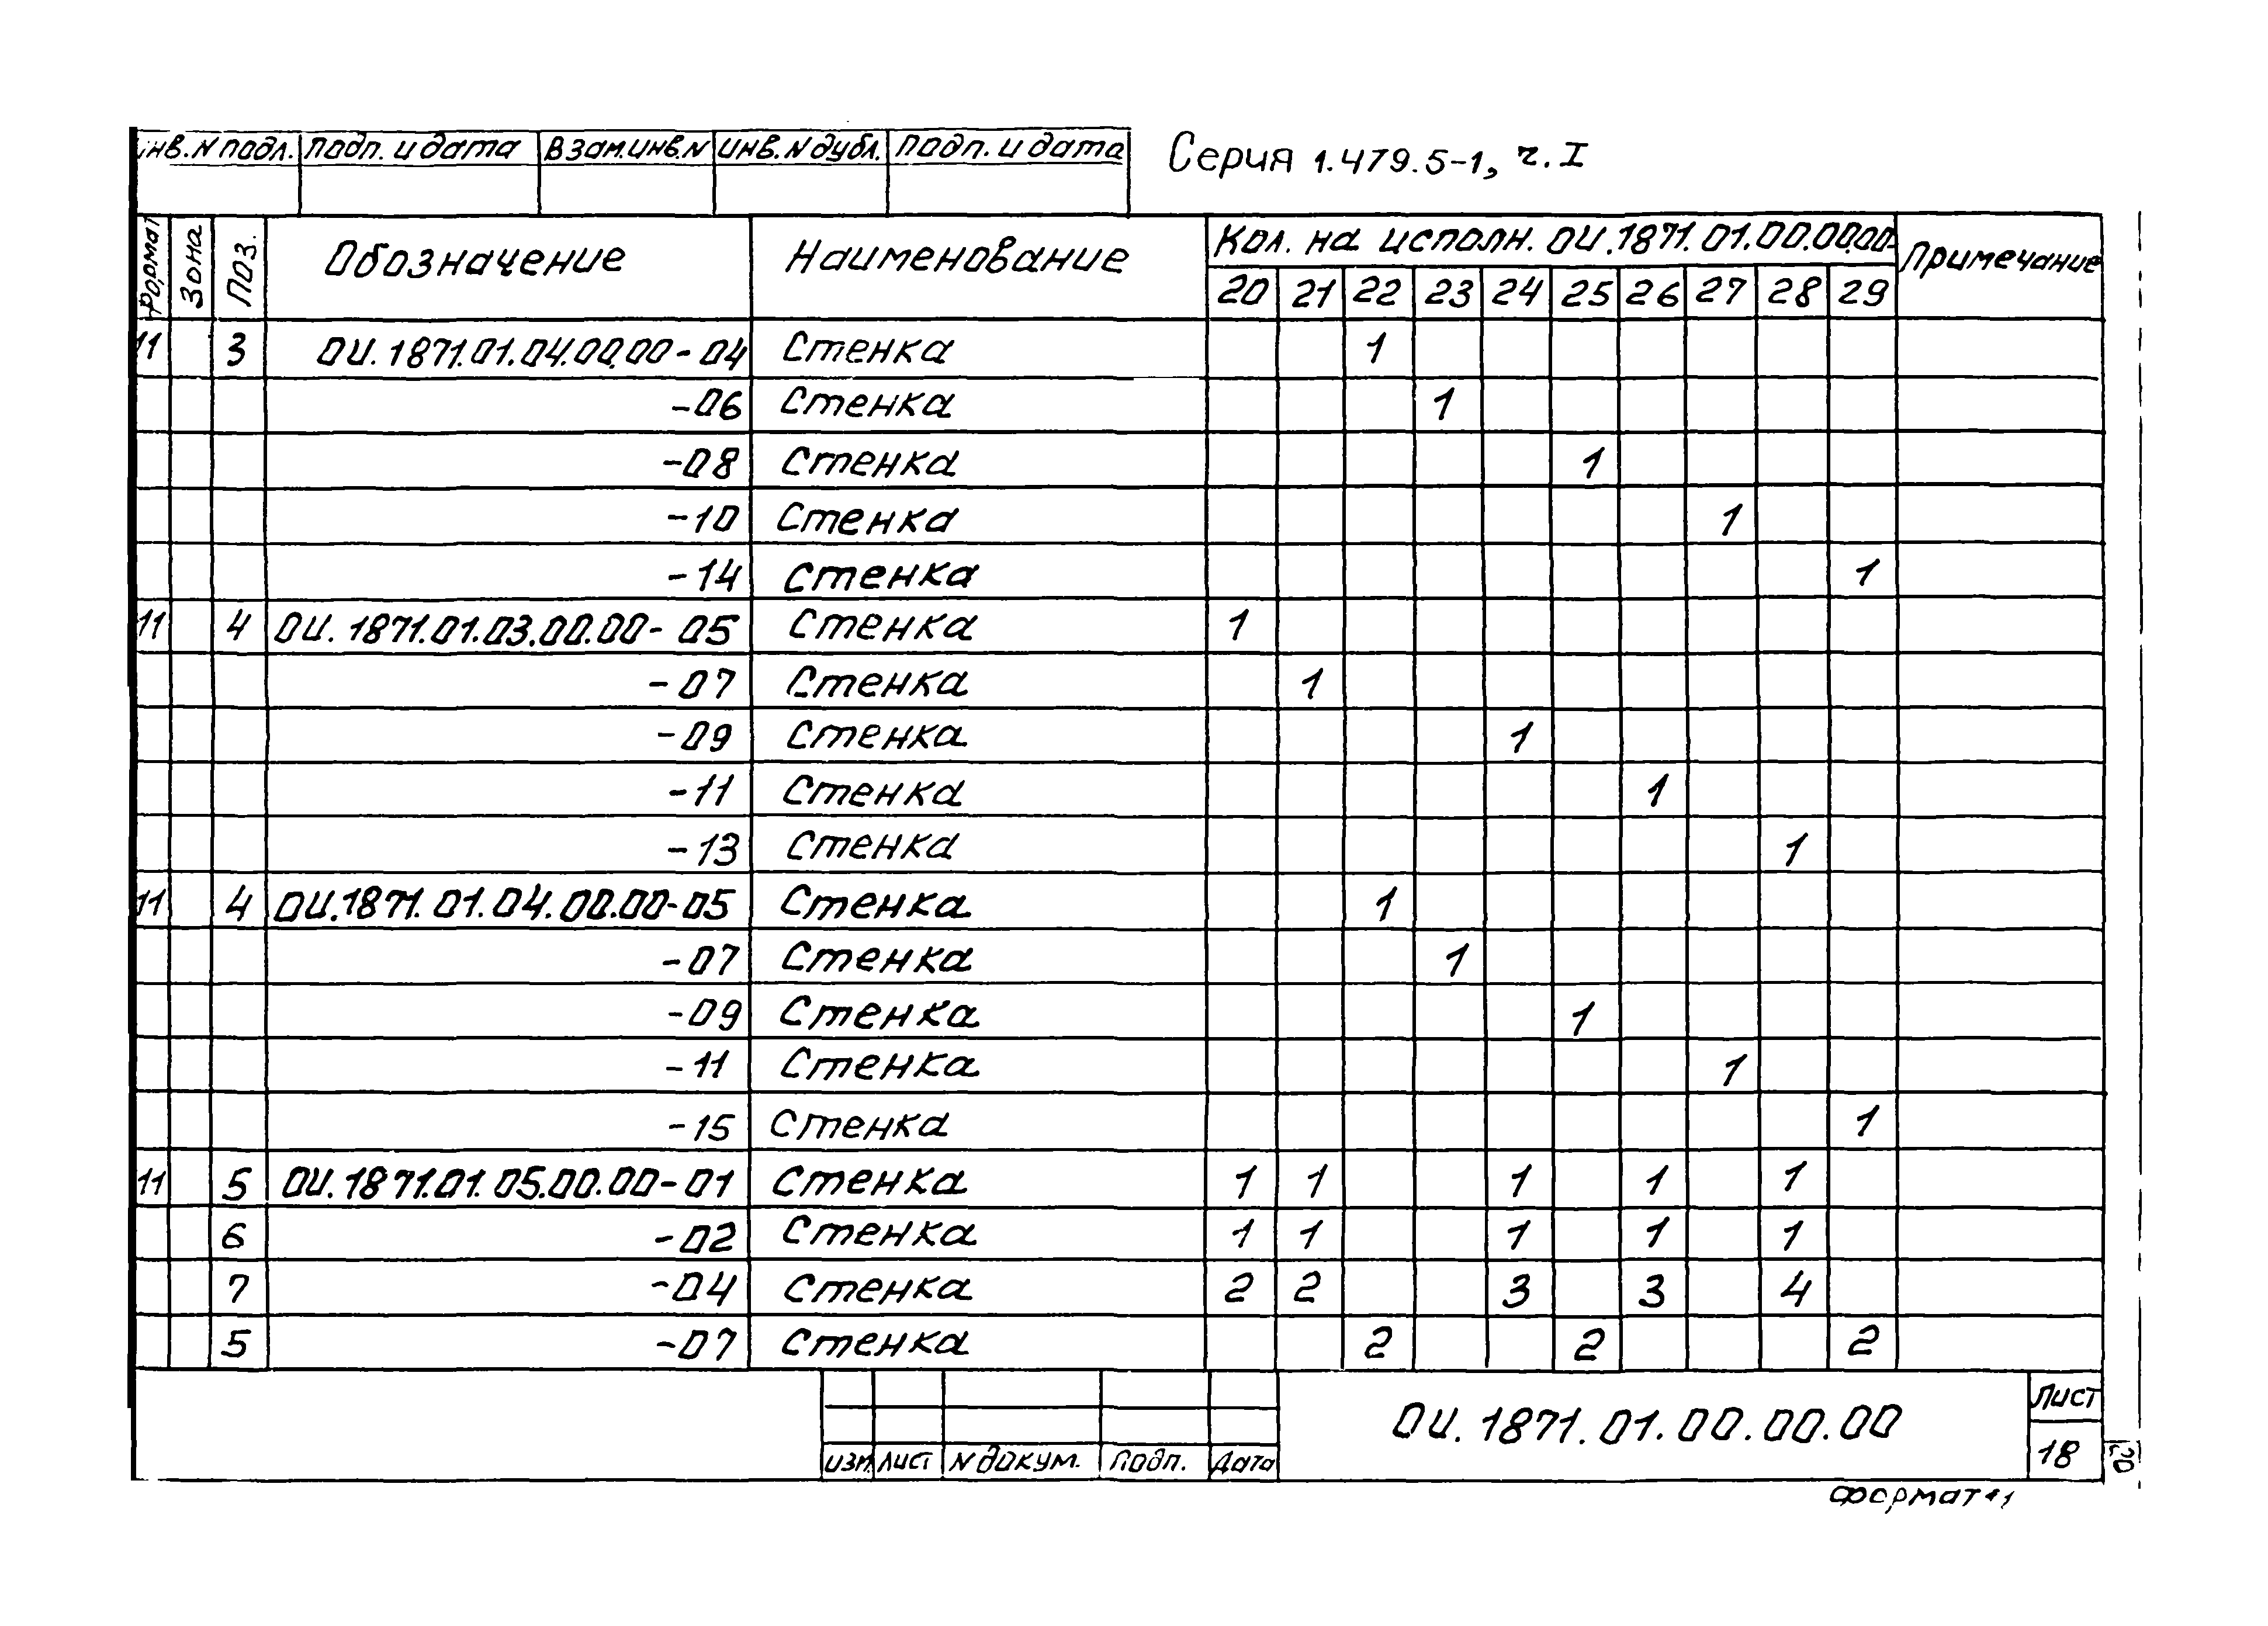 Инв. N подл. Подп. и дата Взам. инв. N Инв. N дубл. Подп. и дата Серия 1.479.5-1, ч. I
Формат Зона Поз. Обозначение Наименование Кол. на исполн. ОИ.1871.01.00.00.00- Примечание
20 21 22 23 24 25 26 27 28 29
11 3 ОИ.1871.01.04.00.00-04 Стенка 1
-06 Стенка 1
-08 Стенка 1
-10 Стенка 1
-14 Стенка 1
11 4 ОИ.1871.01.03.00.00-05 Стенка 1
-07 Стенка 1
-09 Стенка 1
-11 Стенка 1
-13 Стенка 1
11 4 ОИ.1871.01.04.00.00-05 Стенка 1
-07 Стенка 1
-09 Стенка 1
-11 Стенка 1
-15 Стенка 1
11 5 ОИ.1871.01.05.00.00-01 Стенка 1 1 1 1 1
6 -02 Стенка 1 1 1 1 1
7 -04 Стенка 2 2 3 3 4
5 -07 Стенка 2 2 2
ОИ.1871.01.00.00.00 Лист
18
Изм Лист N докум. Подп. Дата
Формат 11